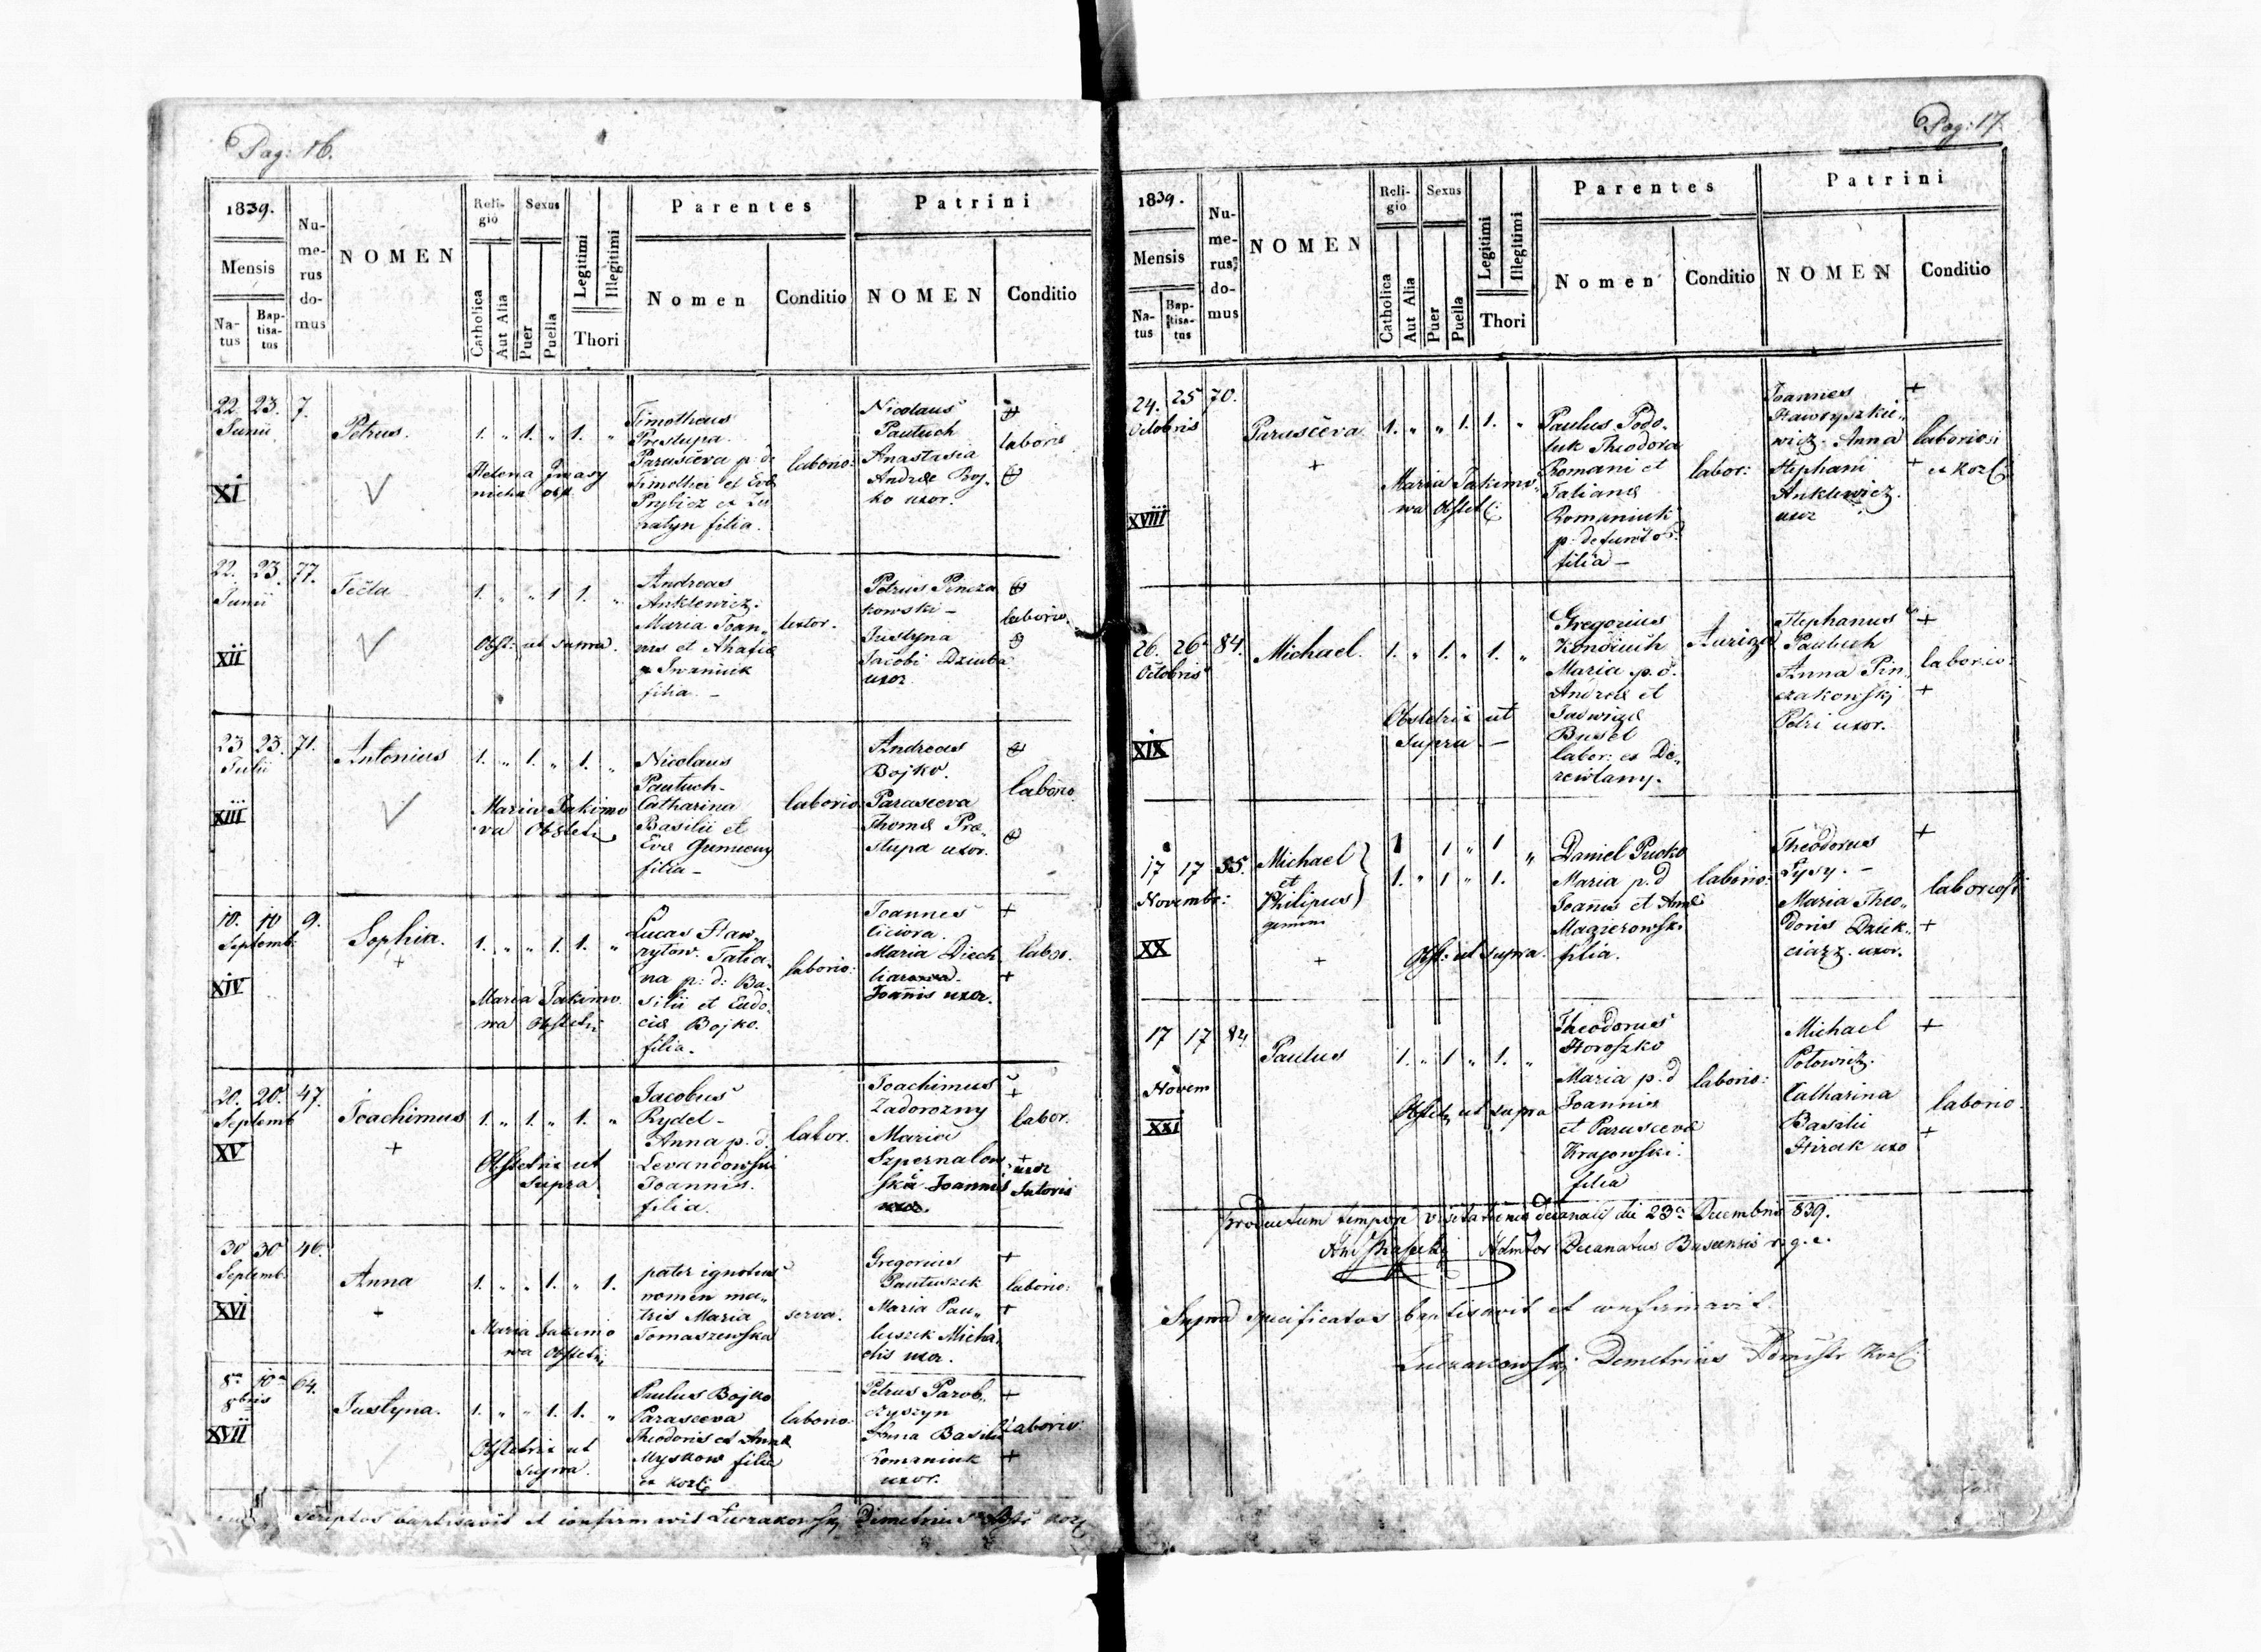 Pag: 16.
1839.
Mensis
Na-
tus
Bap-
tisa-
tus
Nu-
me-
rus
do-
mus
NOMEN
Reli-
gio
Catholica
Aut Alia
Sexus
Puer
Puella
Legitimi
Illegitimi
Thori
Parentes
Nomen
Conditio
Patrini
NOMEN
Conditio
22. 23. 7.
Junii
XI
Petrus.
1. „ 1. „ 1. „
Helena
Timotheus
Prestupa.
Parasceva p. d.
Timothei et Evæ
filia.
laborio:
Nicolaus
Pautuch
Anastasia
Andreæ Boj-
ko uxor.
laboris
22. 23. 77.
Junii
XII
Tecla
1. „ „ 1 1. „
Obst: ut supra.
Andreas
Anklewicz.
Maria Joan-
nis et Ahafiæ
Iwaniuk
filia. -
textor.
Petrus Pincza
kowski -
Justyna
Jacobi Dziuba
uxor.
laborio.
23 23. 71.
Julii
XIII
Antonius
1. „ 1. „ 1. „
Maria Jakimo
va Obstetr
Nicolaus
Pautuch -
Catharina
Basilii et
Evæ
filia -
laborio:
Andreas
Bojko.
Parasceva
Thomæ Pre-
stupa uxor.
laborio
10. 10 9.
Septemb:
XIV
Sophia.
+
1. „ „ 1. 1. „
Maria Jakimo
wa Obstetri
Lucas Haw-
rytow. Tatia-
na p: d: Ba-
silii et Eudo-
ciæ Bojko.
filia.
laborio:
Joannes
Maria
Joannis uxor.
+
labor.
+
20. 20. 47.
Septemb
XV
Joachimus
+
1. „ 1. „ 1. „
Obstetrix ut
supra.
Jacobus
Rydel -
Anna p. d.
Levandowski
Joannis.
filia.
labor.
Joachimus
Zadorozny
Maria
Szpernalow
ska Joannis
+
labor.
+
uxor
Sutoris
30 30 46.
Septemb.
XVI
Anna
+
1. „ „ 1. „ 1.
Maria Jakimo
wa Obstetri
pater ignotus
nomen ma-
tris Maria
Tomaszewska
serva.
Gregorius
Pautuszek
Maria Pau-
tuszek Micha-
elis uxor.
+
laborio:
+
8va 10a 64.
8bris
XVII
Justyna.
1. „ „ 1. 1. „
Obstetrix ut
supra.
Paulus Bojko
Parasceva
Theodoris et Annæ
Myskow filia
laborio:
Petrus Parob-
czyszyn
Anna Basilii
Romaniuk
uxor.
+
Laborio:
+
scriptos baptisavit et confirmavit Luczakowski Demetrius
Pag: 17.
1839.
Mensis
Na-
tus
Bap-
tisa-
tus
Nu-
me-
rus
do-
mus
NOMEN
Reli-
gio
Catholica
Aut Alia
Sexus
Puer
Puella
Legitimi
Illegitimi
Thori
Parentes
Nomen
Conditio
Patrini
NOMEN
Conditio
24. 25 70.
Octobris
XVIII
Parasceva
+
1. „ „ 1. 1. „
Maria Jakimo-
wa Obstet
Paulus Podo-
luk Theodora
Romani et
Tatianæ
Romaniuk
filia -
labor:
Joannes
Hawryszkie-
wicz. Anna
Stephani
Anklewicz.
uxor
+
laboriosi
+
26. 26. 84.
Octobris
XIX
Michael.
1. „ 1. „ 1. „
Obstetrix ut
supra. -
Gregorius
Maria p. d.
Andreæ et
Jadwigæ
Busel
labor: ex De-
rewlany.
Auriga
Stephanus
Pautuch
Anna Pin-
czakowski
Petri uxor.
+
laborio:
+
17 17 55.
Novembr:
XX
Michael
et
Philipus
gemini
+
1 1 „ 1 „
1. „ 1 „ 1.
Obst: ut supra.
Daniel Pucko
Maria p. d
Joannis et Annæ
Magierowski
filia.
laborio:
Theodorus
Lysy. -
Maria Theo-
doris
uxor.
+
laboriosi
+
17 17 84
Novem
XXI
Paulus
1. „ 1 „ 1. „
Obstetr ut supra
Theodorus
Horoszko
Maria p. d
Joannis
et Parascevæ
Krajowski.
filia
laborio:
Michael
Potowicz.
Catharina
Basilii
Hirak uxo
+
laborio.
+
Productum tempore visitationis decanalis die 23a Decembris 839.
Decanatus Buscensis r. g. c.
Supra specificatos baptisavit et confirmavit.
Luczakowski Demetrius